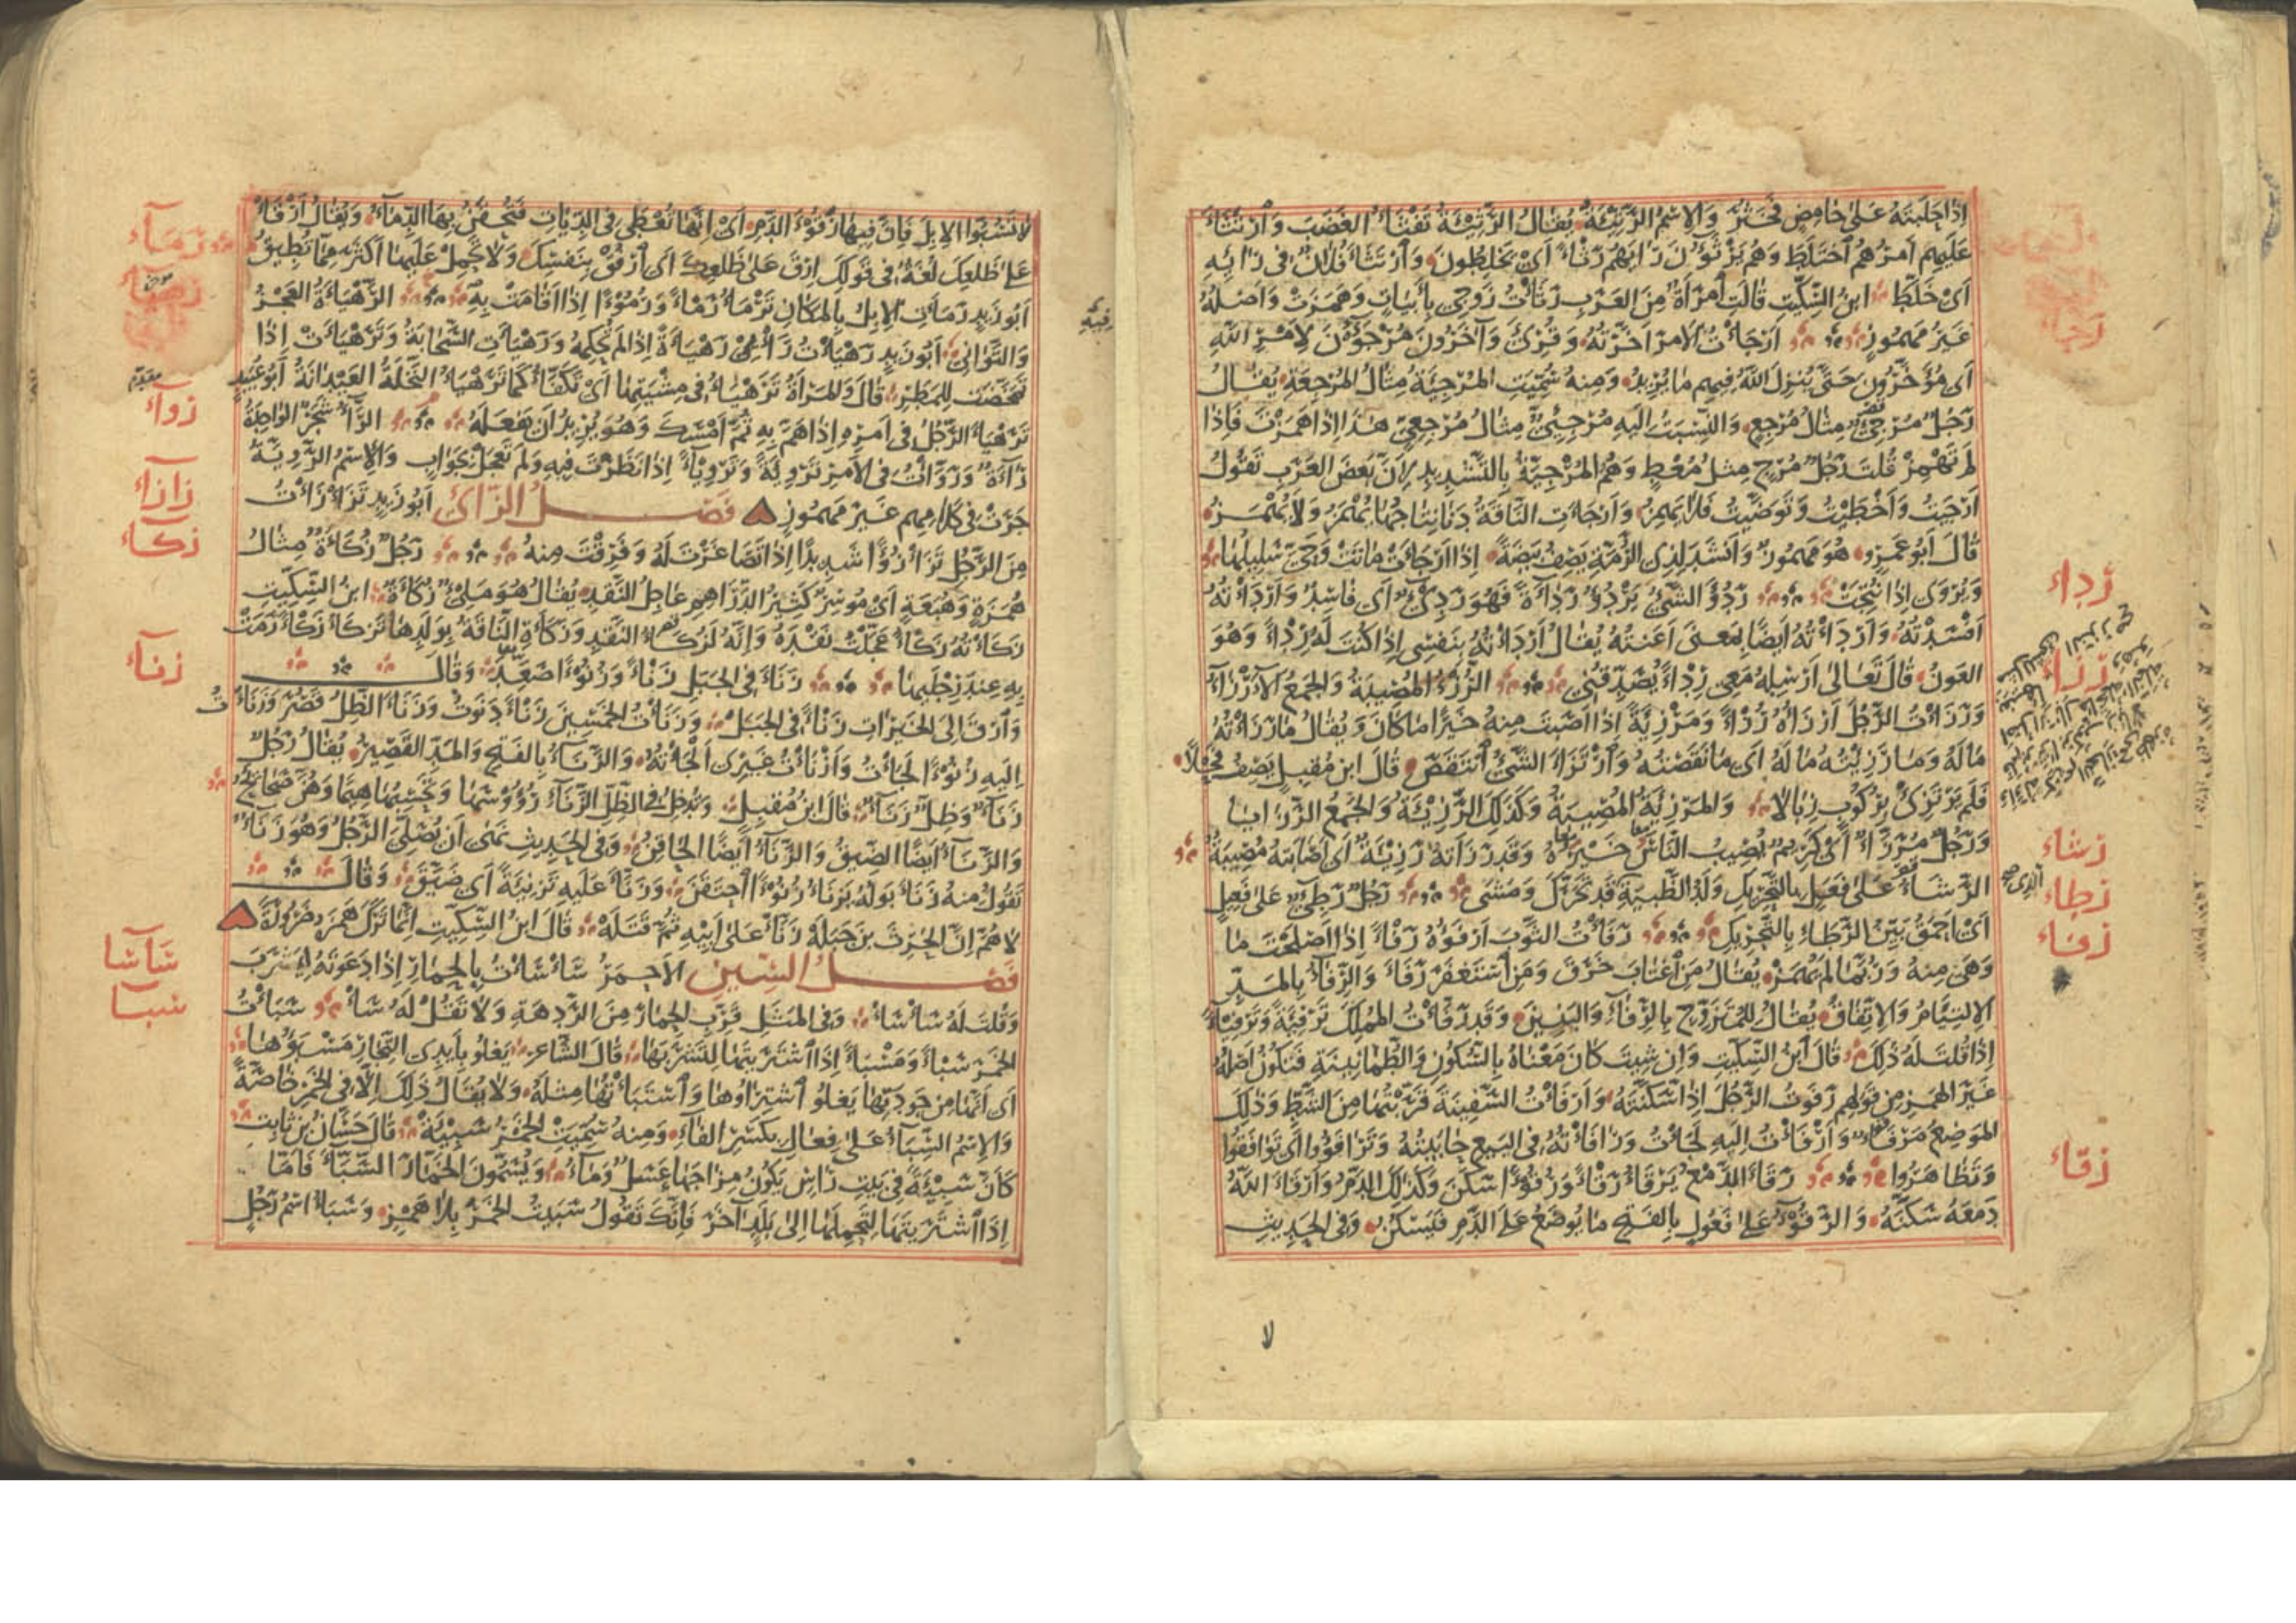 إِذَا حَلَبْتَهُ عَلَى حَامِضٍ فَخَثُرَ وَالاِسْمُ الرَّثِيْئَةُ يُقَالُ الرَّثِيْئَةُ تَفْثَأُ الغَضَبَ وَارْتَثَأَ
عَلَيْهِم أَمْرُهُمْ اخْتَلَطَ وَهُم يَرْثَؤُنَ رَأْيَهُمْ رَثْأً أَيْ يَخْلِطُونَ وَارْتَثَأَ فُلَانٌ فِى رَأْيِهِ
أَىْ خَلَّطَ ابنُ السِّكِّيتِ قَالَتِ امْرَأَةٌ مِنَ العَرَبِ رَثَأْتُ زَوْجِى بِأَبْيَاتٍ وَهَمَزَتْ وَأَصْلُهُ
غَيْرُ مَهْمُوزٍ أَرْجَأْتُ الأَمْرَ أَخَّرْتُهُ وَقُرِئَ وَآخَرُونَ مُرْجَؤُنَ لِأَمْرِ اللهِ
أَى مُؤَخَّرُونَ حَتَّى يُنْزِلَ اللهُ فِيهِم مَا يُرِيدُ وَمِنْهُ سُمِّيَتِ المُرْجِئَةُ مِثَالُ المُرْجِعَةِ يُقَالُ
رَجُلٌ مُرْجِئٌ مِثَالُ مُرْجِعٍ وَالنِّسْبَةُ إِلَيْهِ مُرْجِئِىٌّ مِثَالُ مُرْجِعِىٍّ هَذَا إِذَا هَمَزْتَ فَإِذَا
لَمْ تَهْمِزْ قُلْتَ رَجُلٌ مُرْجٍ مِثْلُ مُعْطٍ وَهُمُ المُرْجِيَّةُ بِالتَّشْدِيدِ لِأَنَّ بَعْضَ العَرَبِ تَقُولُ
أَرْجَيْتُ وَأَخْطَيْتُ وَتَوَضَّيْتُ فَلَا يَهْمِزُ وَأَرْجَأَتِ النَّاقَةُ دَنَا نِتَاجُهَا يُهْمَزُ وَلَا يُهْمَزُ
قَالَ أَبُو عَمْرٍو هُوَ مَهْمُوزٌ وَأَنْشَدَ لِذِى الرُّمَّةِ يَصِفُ بَيْضَةً إِذَا أَرْجَأَتْ مَاتَتْ وَحَىَّ سَلِيلُهَا
وَيُرْوَى إِذَا نُتِجَتْ رَدُؤَ الشَّىْءُ يَرْدُؤُ رَدَاءَةً فَهُوَ رَدِئٌ أَى فَاسِدٌ وَأَرْدَأْتُهُ
أَفْسَدْتُهُ وَأَرْدَأْتُهُ أَيْضًا بِمَعْنَى أَعَنْتُهُ يُقَالُ أَرْدَأْتُهُ بِنَفْسِى إِذَا كُنْتَ لَهُ رِدْأً وَهُوَ
العَوْنُ قَالَ تَعَالَى أَرْسِلْهُ مَعِى رِدْأً يُصَدِّقُنِى الرُّزْءُ المُصِيبَةُ وَالجَمْعُ الأَرْزَاءُ
وَرَزَأْتُ الرَّجُلَ أَرْزَأُهُ رُزْأً وَمَرْزِئَةً إِذَا أَصَبْتَ مِنْهُ خَيْرًا مَا كَانَ وَيُقَالُ مَا رَزَأْتُهُ
مَالَهُ وَمَا رَزِئْتُهُ مَالَهُ أَى مَا نَقَصْتُهُ وَارْتَزَأَ الشَّىْءُ انْتَقَصَ قَالَ ابن مُقْبِلٍ يَصِفُ فَحْلًا
فَلَمْ يَرْتَزِئْ بِرُكُوبٍ زِبَالًا وَالمَرْزِئَةُ المُصِيبَةُ وَكَذَلِكَ الرَّزِيْئَةُ وَالجَمْعُ الرَّزَايَا
وَرَجُلٌ مُرَزَّأٌ أَى كَرِيمٌ يُصِيبُ النَّاسُ خَيْرَهُ وَقَدْ رَزَأَتْهُ رَزِيْئَةٌ أَى أَصَابَتْهُ مُصِيبَةٌ
الرَّشَأُ عَلَى فَعَلٍ بِالتَّحْرِيكِ وَلَدُ الظَّبْيَةِ قَدْ تَحَرَّكَ وَمَشَى رَجُلٌ رَطِئٌ عَلَى فَعِيلٍ
أَىْ أَحْمَقُ بَيِّنُ الرَّطَاءِ بِالتَّحْرِيكِ رَفَأْتُ الثَّوْبَ أَرْفَؤُهُ رَفْأً إِذَا أَصْلَحْتَ مَا
وَهَى مِنْهُ وَرُبَّمَا لَمْ يُهْمَزْ يُقَالُ مَنِ اغْتَابَ خَرَقَ وَمَنِ اسْتَغْفَرَ رَفَأَ وَالرِّفَاءُ بِالمَدِّ
الاِلْتِيَامُ وَالاِتِّفَاقُ يُقَالُ لِلْمُتَزَوِّجِ بِالرِّفَاءِ وَالبَنِينَ وَقَدْ رَفَّأْتُ المُمْلِكَ تَرْفِئَةً وَتَرْفِيئًا
إِذَا قُلْتَ لَهُ ذَلِكَ قَالَ ابنُ السِّكِّيتِ وَإِنْ شِئْتَ كَانَ مَعْنَاهُ بِالسُّكُونِ وَالطُّمَأْنِينَةِ فَيَكُونُ أَصْلُهُ
غَيْرَ الهَمْزِ مِن قَوْلِهِم رَفَوْتُ الرَّجُلَ إِذَا سَكَّنْتَهُ وَأَرْفَأْتُ السَّفِينَةَ قَرَّبْتُهَا مِنَ الشَّطِّ وَذَلِكَ
المَوْضِعُ مَرْفَأٌ وَأَرْفَأْتُ إِلَيْهِ لَجَأْتُ وَرَافَأْتُهُ فِى البَيْعِ حَابَيْتُهُ وَتَرَافَؤُوا أَى تَوَافَقُوا
وَتَظَاهَرُوا رَقَأَ الدَّمْعُ يَرْقَأُ رَقْأً وَرُقُوءًا سَكَنَ وَكَذَلِكَ الدَّمُ وَأَرْقَأَ اللهُ
دَمْعَهُ سَكَّنَهُ وَالرَّقُوءُ عَلَى فَعُولٍ بِالفَتْحِ مَا يُوضَعُ عَلَى الدَّمِ فَيَسْكُنُ وَفِى الحَدِيثِ
رَدِأء
رَزَاء
رشاء
رطاء
رفاء
رقاء
لا
لَا تَسُبُّوا الإِبِلَ فَإِنَّ فِيهَا رَقُوءَ الدَّمِ أَىْ إِنَّهَا تُعْطَى فِى الدِّيَاتِ فَتُحْقَنُ بِهَا الدِّمَاءُ وَيُقَالُ ارْقَأْ
عَلَى ظَلْعِكَ لُغَةٌ فِى قَوْلِكَ ارْقَ عَلَى ظَلْعِكَ أَى ارْفُقْ بِنَفْسِكَ وَلَا تَحْمِلْ عَلَيْهَا أَكْثَرَ مِمَّا تُطِيقُ
أَبُو زَيْدٍ رَمَأَتِ الإِبِلُ بِالمَكَانِ تَرْمَأُ رَمْأً وَرُمُوْءًا إِذَا أَقَامَتْ بِهِ الرَّهْيَأَةُ العَجْزُ
وَالتَّوَانِى أَبُو زَيْدٍ رَهْيَأْتُ رَأْيِى رَهْيَأَةً إِذَا لَمْ تُحْكِمْهُ وَرَهْيَأَتِ السَّحَابَةُ وَتَرَهْيَأَتْ إِذَا
تَمَخَّضَتْ لِلْمَطَرِ قَالَ وَالمَرْأَةُ تَرَهْيَأُ فِى مِشْيَتِهَا أَىْ تَكَفَّأُ كَمَا تَرَهْيَأُ النَّخْلَةُ العَيْدَانَةُ أَبُو عُبَيْدٍ
تَرَهْيَأَ الرَّجُلُ فِى أَمْرِهِ إِذَا هَمَّ بِهِ ثُمَّ أَمْسَكَ وَهُوَ يُرِيدُ أَنْ يَفْعَلَهُ الرَّاءُ شَجَرٌ الوَاحِدَةُ
رَاءَةٌ وَرَوَّأْتُ فِى الأَمْرِ تَرْوِئَةً وَتَرْوِيئًا إِذَا نَظَرْتَ فِيهِ وَلَمْ تَعْجَلْ بِجَوَابٍ وَالاِسْمُ الرَّوِيَّةُ
جَرَتْ فِى كَلَامِهِم غَيْرَ مَهْمُوزٍ فَصْلُ الزَّاىِ أَبُو زَيْدٍ تَزَأْزَأْتُ
مِنَ الرَّجُلِ تَزَأْزُؤًا شَدِيدًا إِذَا تَصَاغَرْتَ لَهُ وَفَرِقْتَ مِنْهُ رَجُلٌ زُكَأَةٌ مِثَالُ
هُمَزَةٍ وَهُبَعَةٍ أَىْ مُوسِرٌ كَثِيرُ الدَّرَاهِمِ عَاجِلُ النَّقْدِ يُقَالُ هُوَ مَلِىءٌ زُكَأَةٌ ابنُ السِّكِّيتِ
زَكَأْتُهُ زَكْأً عَجَّلْتُ نَقْدَهُ وَإِنَّهُ لَزُكَاءُ النَّقْدِ وَزَكَأَتِ النَّاقَةُ بِوَلَدِهَا تَزْكَأُ زَكْأً رَمَتْ
بِهِ عِنْدَ رِجْلَيْهَا زَنَأَ فِى الجَبَلِ زَنْأً وَزُنُوْءًا صَعِدَ وَقَالَ
وَارْقَ إِلَى الخَيْرَاتِ زَنْأً فِى الجَبَلْ وَزَنَأْتُ لِلخَمْسِينَ زَنْأً دَنَوْتُ وَزَنَأَ الظِّلُّ قَصُرَ وَزَنَأْتُ
إِلَيْهِ زُنُوْءًا لَجَأْتُ وَأَزْنَأْتُ غَيْرِى أَلْجَأْتُهُ وَالزَّنَاءُ بِالفَتْحِ وَالمَدِّ القَصِيرُ يُقَالُ رَجُلٌ
زَنَاءٌ وَظِلٌّ زَنَاءٌ قَالَ ابنُ مُقْبِلٍ وَتُدْخِلُ فِى الظِّلِّ الزَّنَاءِ رُؤُوسَهَا وَتَحْسِبُهَا هِيمًا وَهُنَّ صَحَائِحُ
وَالزَّنَاءُ أَيْضًا الضَّيِّقُ وَالزَّنَاءُ أَيْضًا الحَاقِنُ وَفِى الحَدِيثِ نَهَى أَنْ يُصَلِّىَ الرَّجُلُ وَهُوَ زَنَاءٌ
تَقُولُ مِنْهُ زَنَأَ بَوْلُهُ يَزْنَأُ زُنُوْءًا احْتَقَنَ وَزَنَّأَ عَلَيْهِ تَزْنِئَةً أَى ضَيَّقَ وَقَالَ
لَاهُمَّ إِنَّ الحَرِثَ بنَ جَبَلَهْ زَنَّأَ عَلَى أَبِيهِ ثُمَّ قَتَلَهْ قَالَ ابنُ السِّكِّيتِ إِنَّمَا تَرَكَ هَمْزَهُ ضَرُورَةً
فَصْلُ السِّينِ الأَحْمَرُ سَأْسَأْتُ بِالحِمَارِ إِذَا دَعَوْتَهُ لِيَشْرَبَ
وَقُلْتَ لَهُ سَأْسَأْ وَفِى المَثَلِ قَرِّبِ الحِمَارَ مِنَ الرَّدْهَةِ وَلَا تَقُلْ لَهُ سَأْ سَبَأْتُ
الخَمْرَ سَبْأً وَمَسْبَأً إِذَا اشْتَرَيْتَهَا لِتَشْرَبَهَا قَالَ الشَّاعِرُ يَغْلُو بِأَيْدِى التِّجَارِ مَسْبَؤُهَا
أَى أَنَّهَا مِن جَوْدَتِهَا يَغْلُو اشْتِرَاؤُهَا وَاسْتَبَأْتُهَا مِثْلُهُ وَلَا يُقَالُ ذَلِكَ إِلَّا فِى الخَمْرِ خَاصَّةً
وَالاِسْمُ السِّبَاءُ عَلَى فِعَالٍ بِكَسْرِ الفَاءِ وَمِنْهُ سُمِّيَتِ الخَمْرُ سَبِيْئَةً قَالَ حَسَّانُ بنُ ثَابِتٍ
كَأَنَّ سَبِيْئَةً فِى بَيْتِ رَأْسٍ يَكُونُ مِزَاجَهَا عَسَلٌ وَمَاءُ وَيُسَمُّونَ الخَمَّارَ السَّبَّاءَ فَأَمَّا
إِذَا اشْتَرَيْتَهَا لِتَحْمِلَهَا إِلَى بَلَدٍ آخَرَ فَإِنَّكَ تَقُولُ سَبَيْتُ الخَمْرَ بِلَا هَمْزٍ وَسَبَأُ اسْمُ رَجُلٍ
رَمَاء
رهياء
رواء
زازاء
زكاء
زناء
سَأسَا
سبا